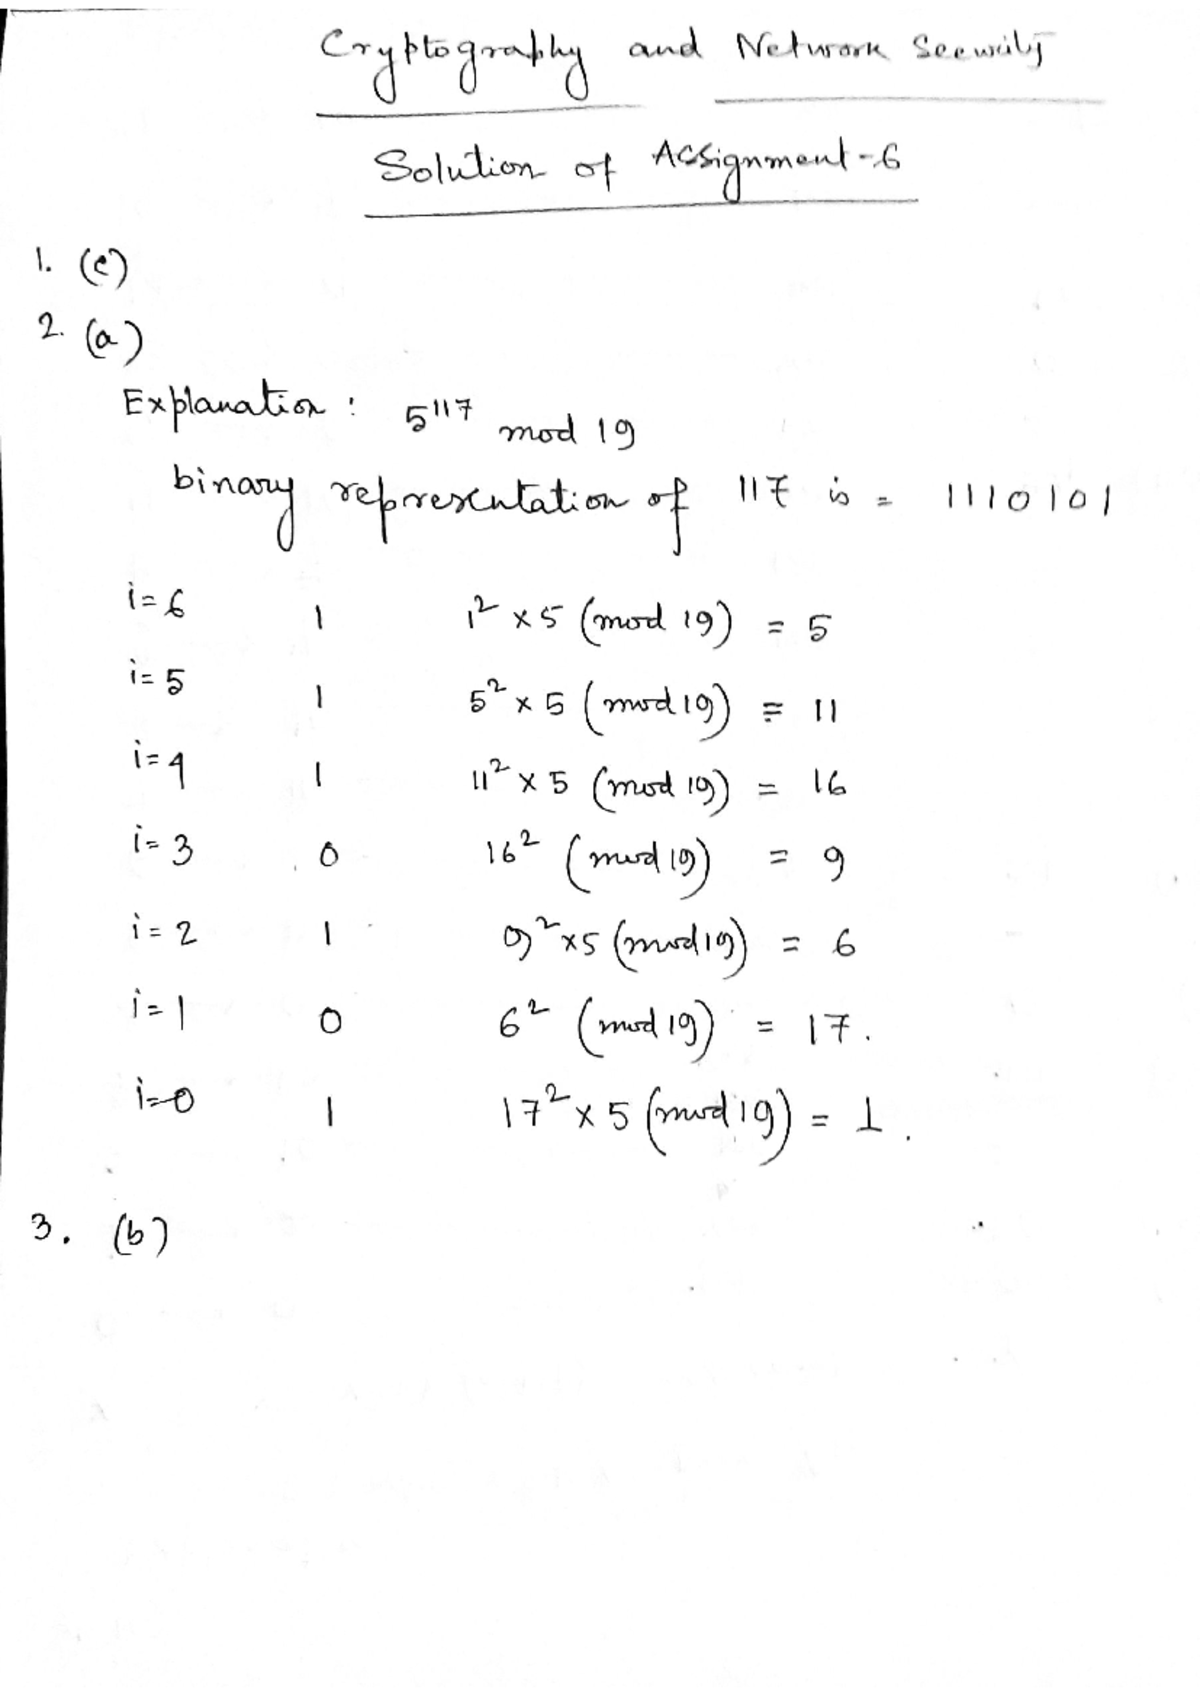 Cryptography and Network Security
Solution of Assignment-6
1. (c)
2. (a)
Explanation : 5¹¹⁷ mod 19
binary representation of 117 is = 1110101
i=6 1 1² x 5 (mod 19) = 5
i=5 1 5² x 5 (mod 19) = 11
i=4 1 11² x 5 (mod 19) = 16
i=3 0 16² (mod 19) = 9
i=2 1 9² x5 (mod 19) = 6
i=1 0 6² (mod 19) = 17.
i=0 1 17² x 5 (mod 19) = 1.
3. (b)